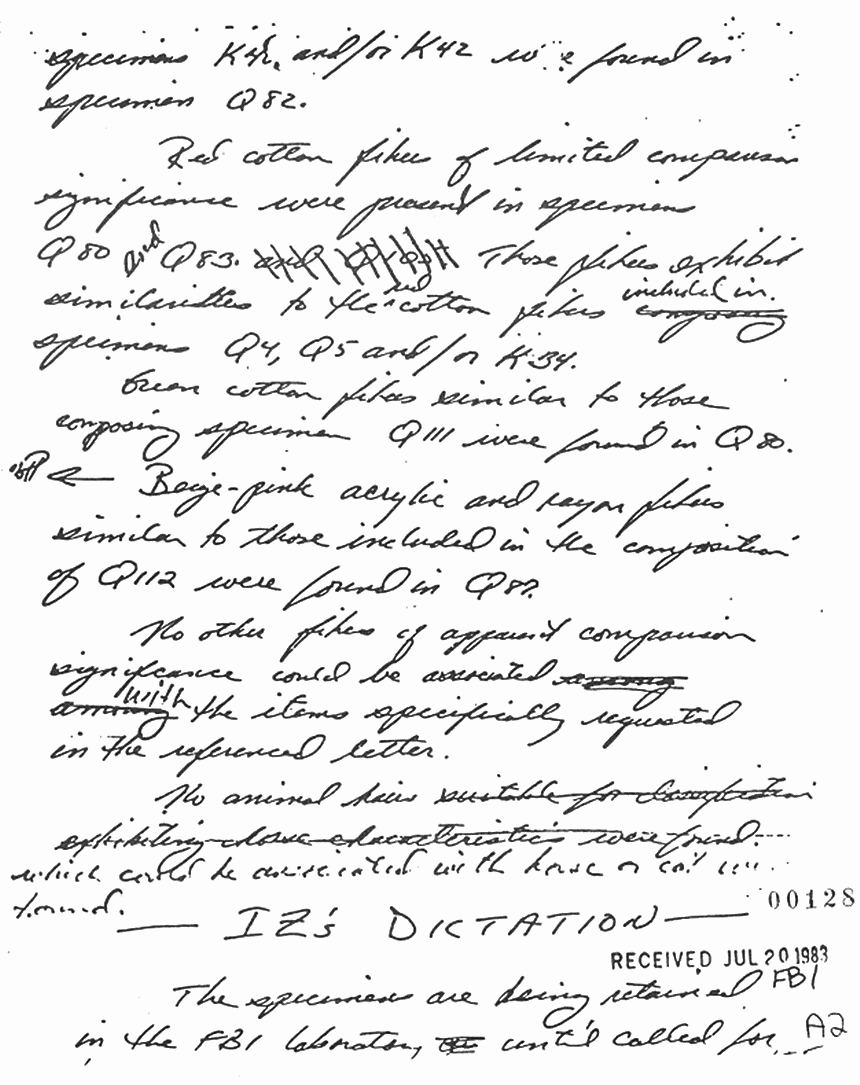 specimens K41, and/or K42 were found in
specimen Q82.
Red cotton fibers of limited comparison
significance were present in specimens
Q80 and Q83. Those fibers exhibit
similarities to the red cotton fibers included in composing
specimens Q4, Q5 and/or K34.
Green cotton fibers similar to those
composing specimen Q111 were found in Q80.
Beige-pink acrylic and rayon fibers
similar to those included in the composition
of Q112 were found in
No other fibers of apparent comparison
significance could be associated among
among with the items specifically requested
in the referenced letter.
No animal hairs suitable for classification
exhibiting those characteristics were found.
which could be associated with horse or cat
found.
00128
IZ's DICTATION
RECEIVED JUL 20 1983
FBI
The specimens are being retained
in the FBI laboratory until called for.
A2